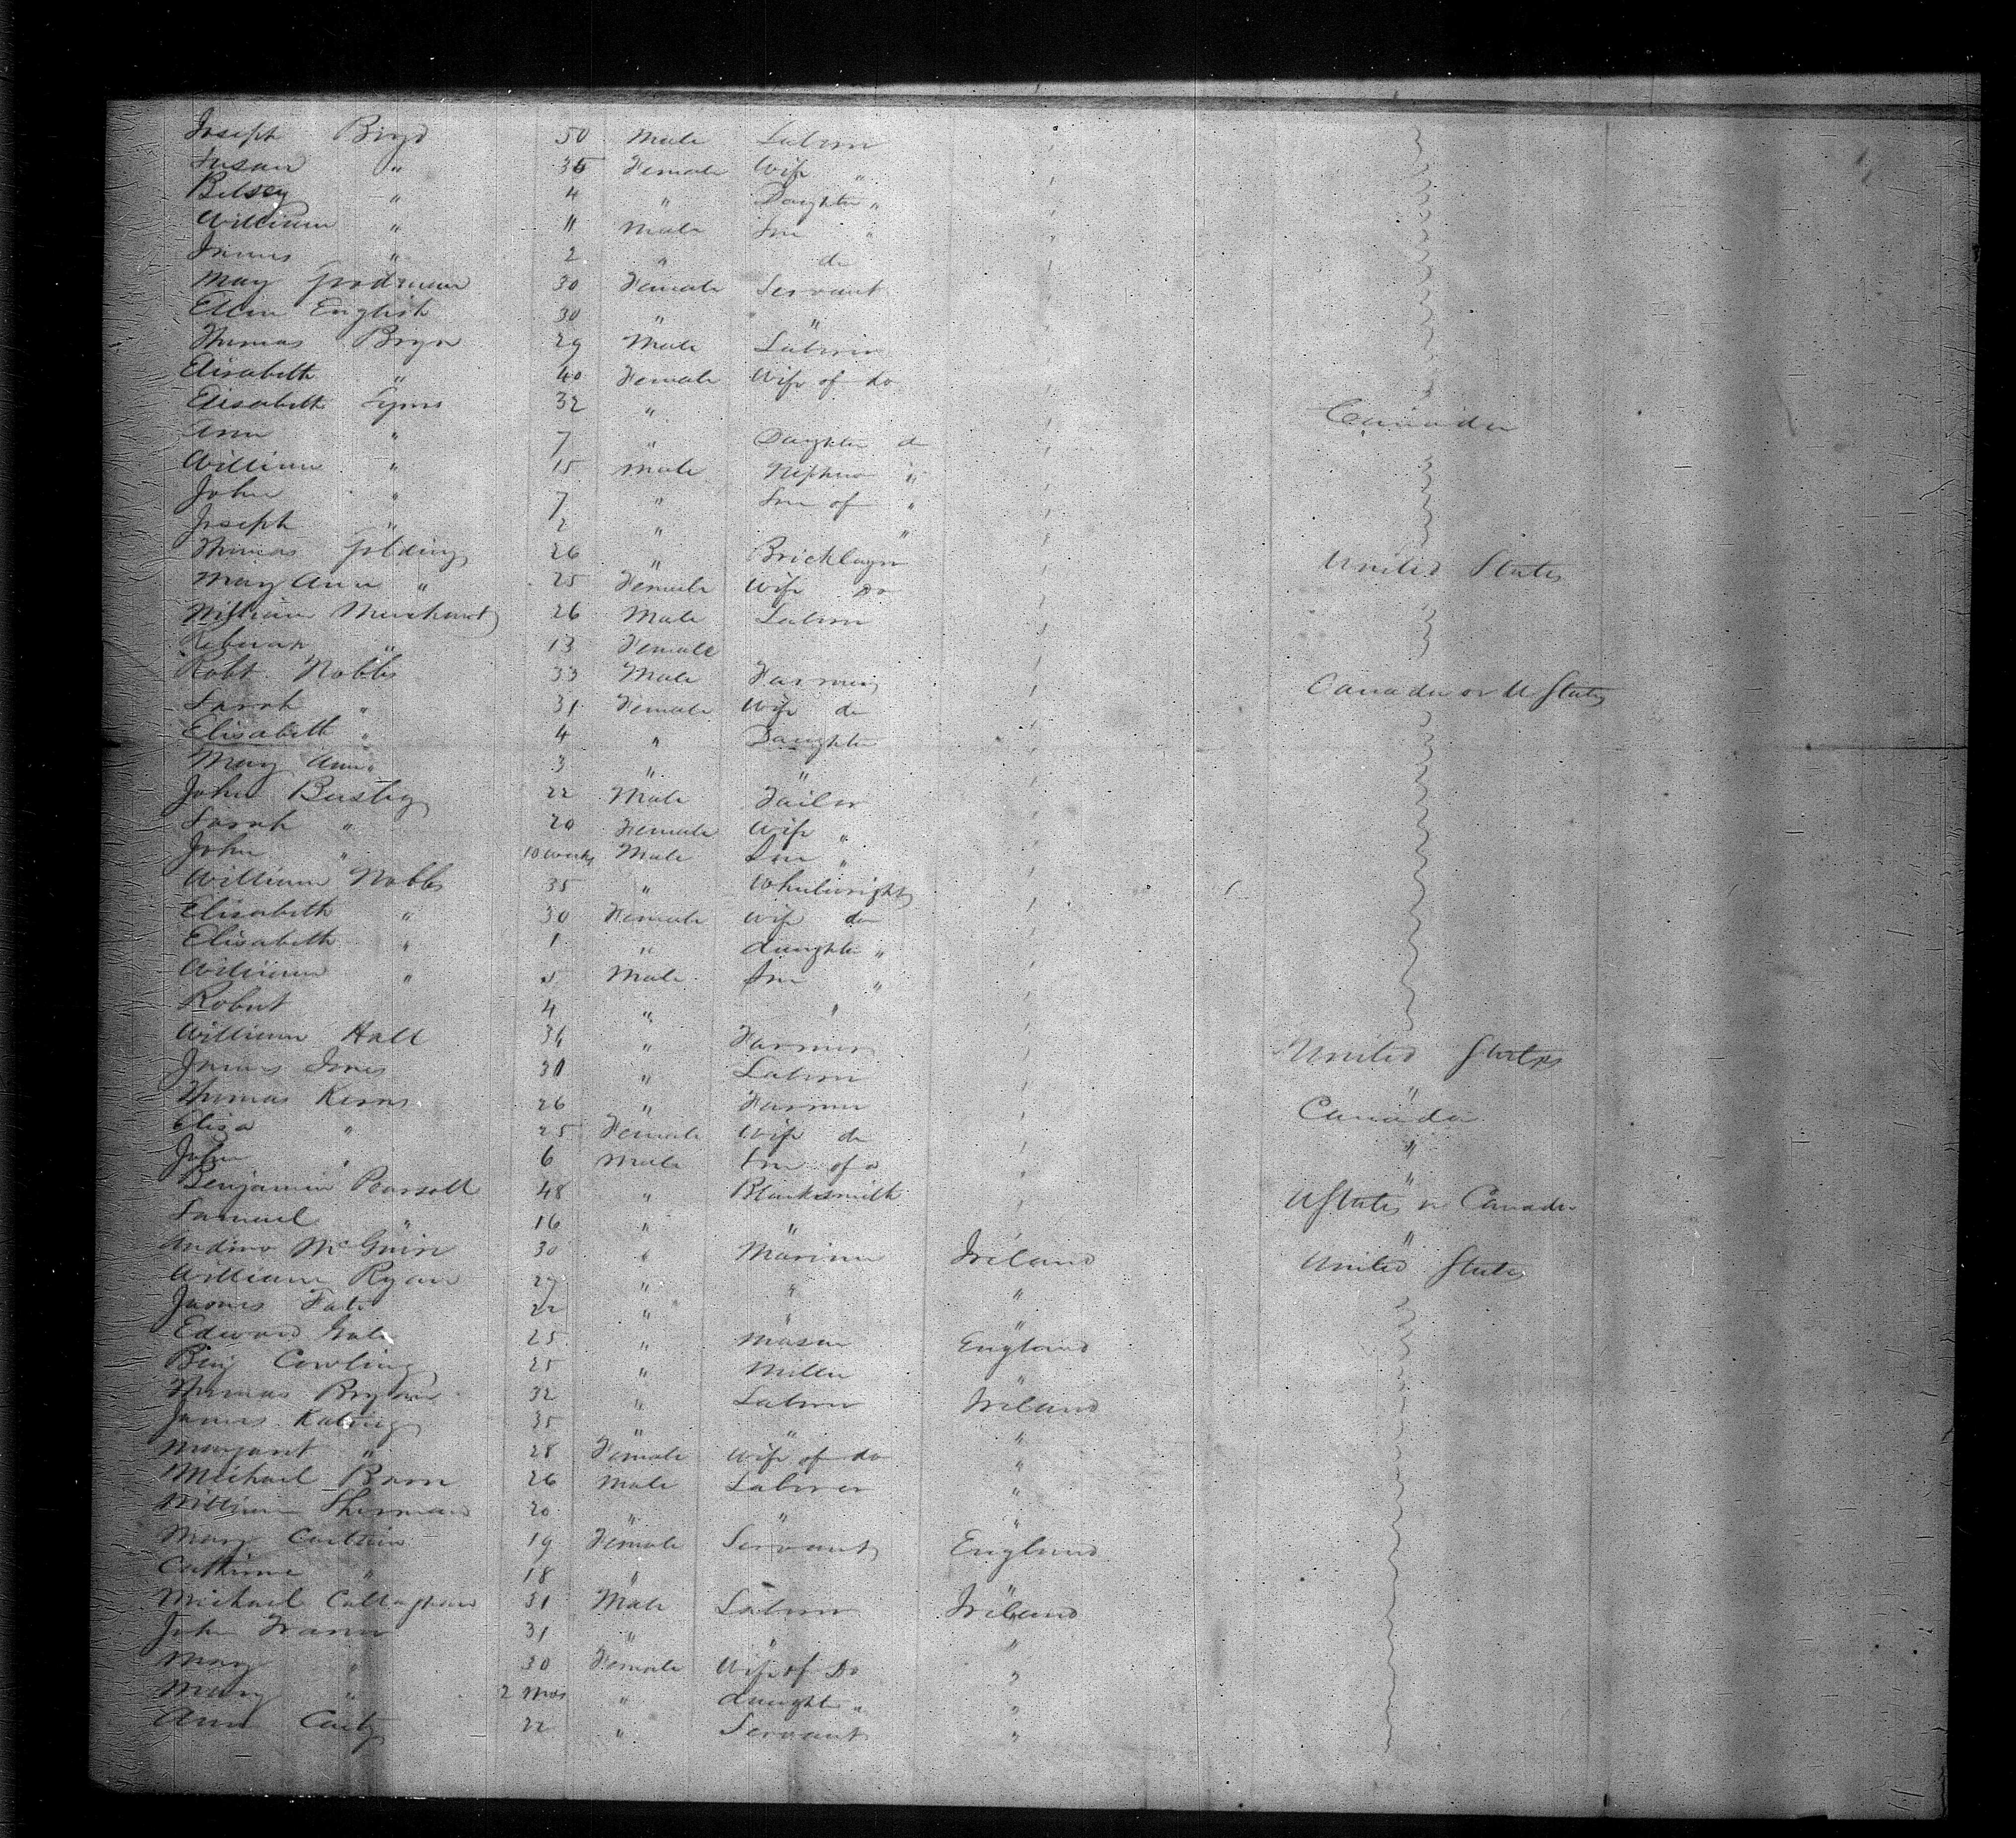 Joseph Boyd 50 Male Labour
Susan " 35 Female Wife "
Betsey " 4 " Daughter "
William " 11 Male Son "
James " 2 " do
Mary Goodman 30 Female Servant
Ellen English 30 " "
Thomas Bryan 29 Male Labour
Elisabeth " 40 Female Wife of do
Elisabeth Lyms 32 " Canada
Ann " 7 " Daughter do
William " 15 Male Nephew "
John " 7 " Son of "
Joseph " 2 " "
Thomas Golding 26 " Bricklayer United States
Mary Ann " 25 Female Wife Do
William Merchant 26 Male Labour
" 13 Female
Robt Nobbs 33 Male Farmer Canada or U States
Sarah " 31 Female Wife do
Elisabeth " 4 " Daughter
Mary Ann " 3 " "
John 22 Male Tailor
Sarah " 20 Female Wife "
John " 10 weeks Male Son "
William Nobbs 35 " Wheelwright
Elisabeth " 30 Female Wife do
Elisabeth " 1 " daughter "
William " 5 Male Son "
Robert 4 " "
William Hall 34 " Farmer United States
James Jones 30 " Labour "
Thomas Kerns 26 " Farmer Canada
Elisa " 25 Female Wife do "
John " 6 Male Son of do "
Benjamin Pearsall 48 " Blacksmith U States or Canada
Samuel " 16 " " "
Andrew McGuire 30 " Mariner Ireland United States
William Ryan 27 " " "
James 22 " " "
Edward Gale 25 " Mason England
Benj Cowling 25 " Miller "
Thomas Bryan 32 " Labour Ireland
James Kating 35 " " "
Margaret " 28 Female Wife of do "
Michael 26 Male Laborer "
William Sherman 20 " " "
Mary 19 Female Servant England
Cathrine " 18 " "
Michael Callaghan 31 Male Labour Ireland
John 31 " " "
Mary " 30 Female Wife of Do "
Mary " 2 Mos " daughter " "
Ann 22 " Servant "